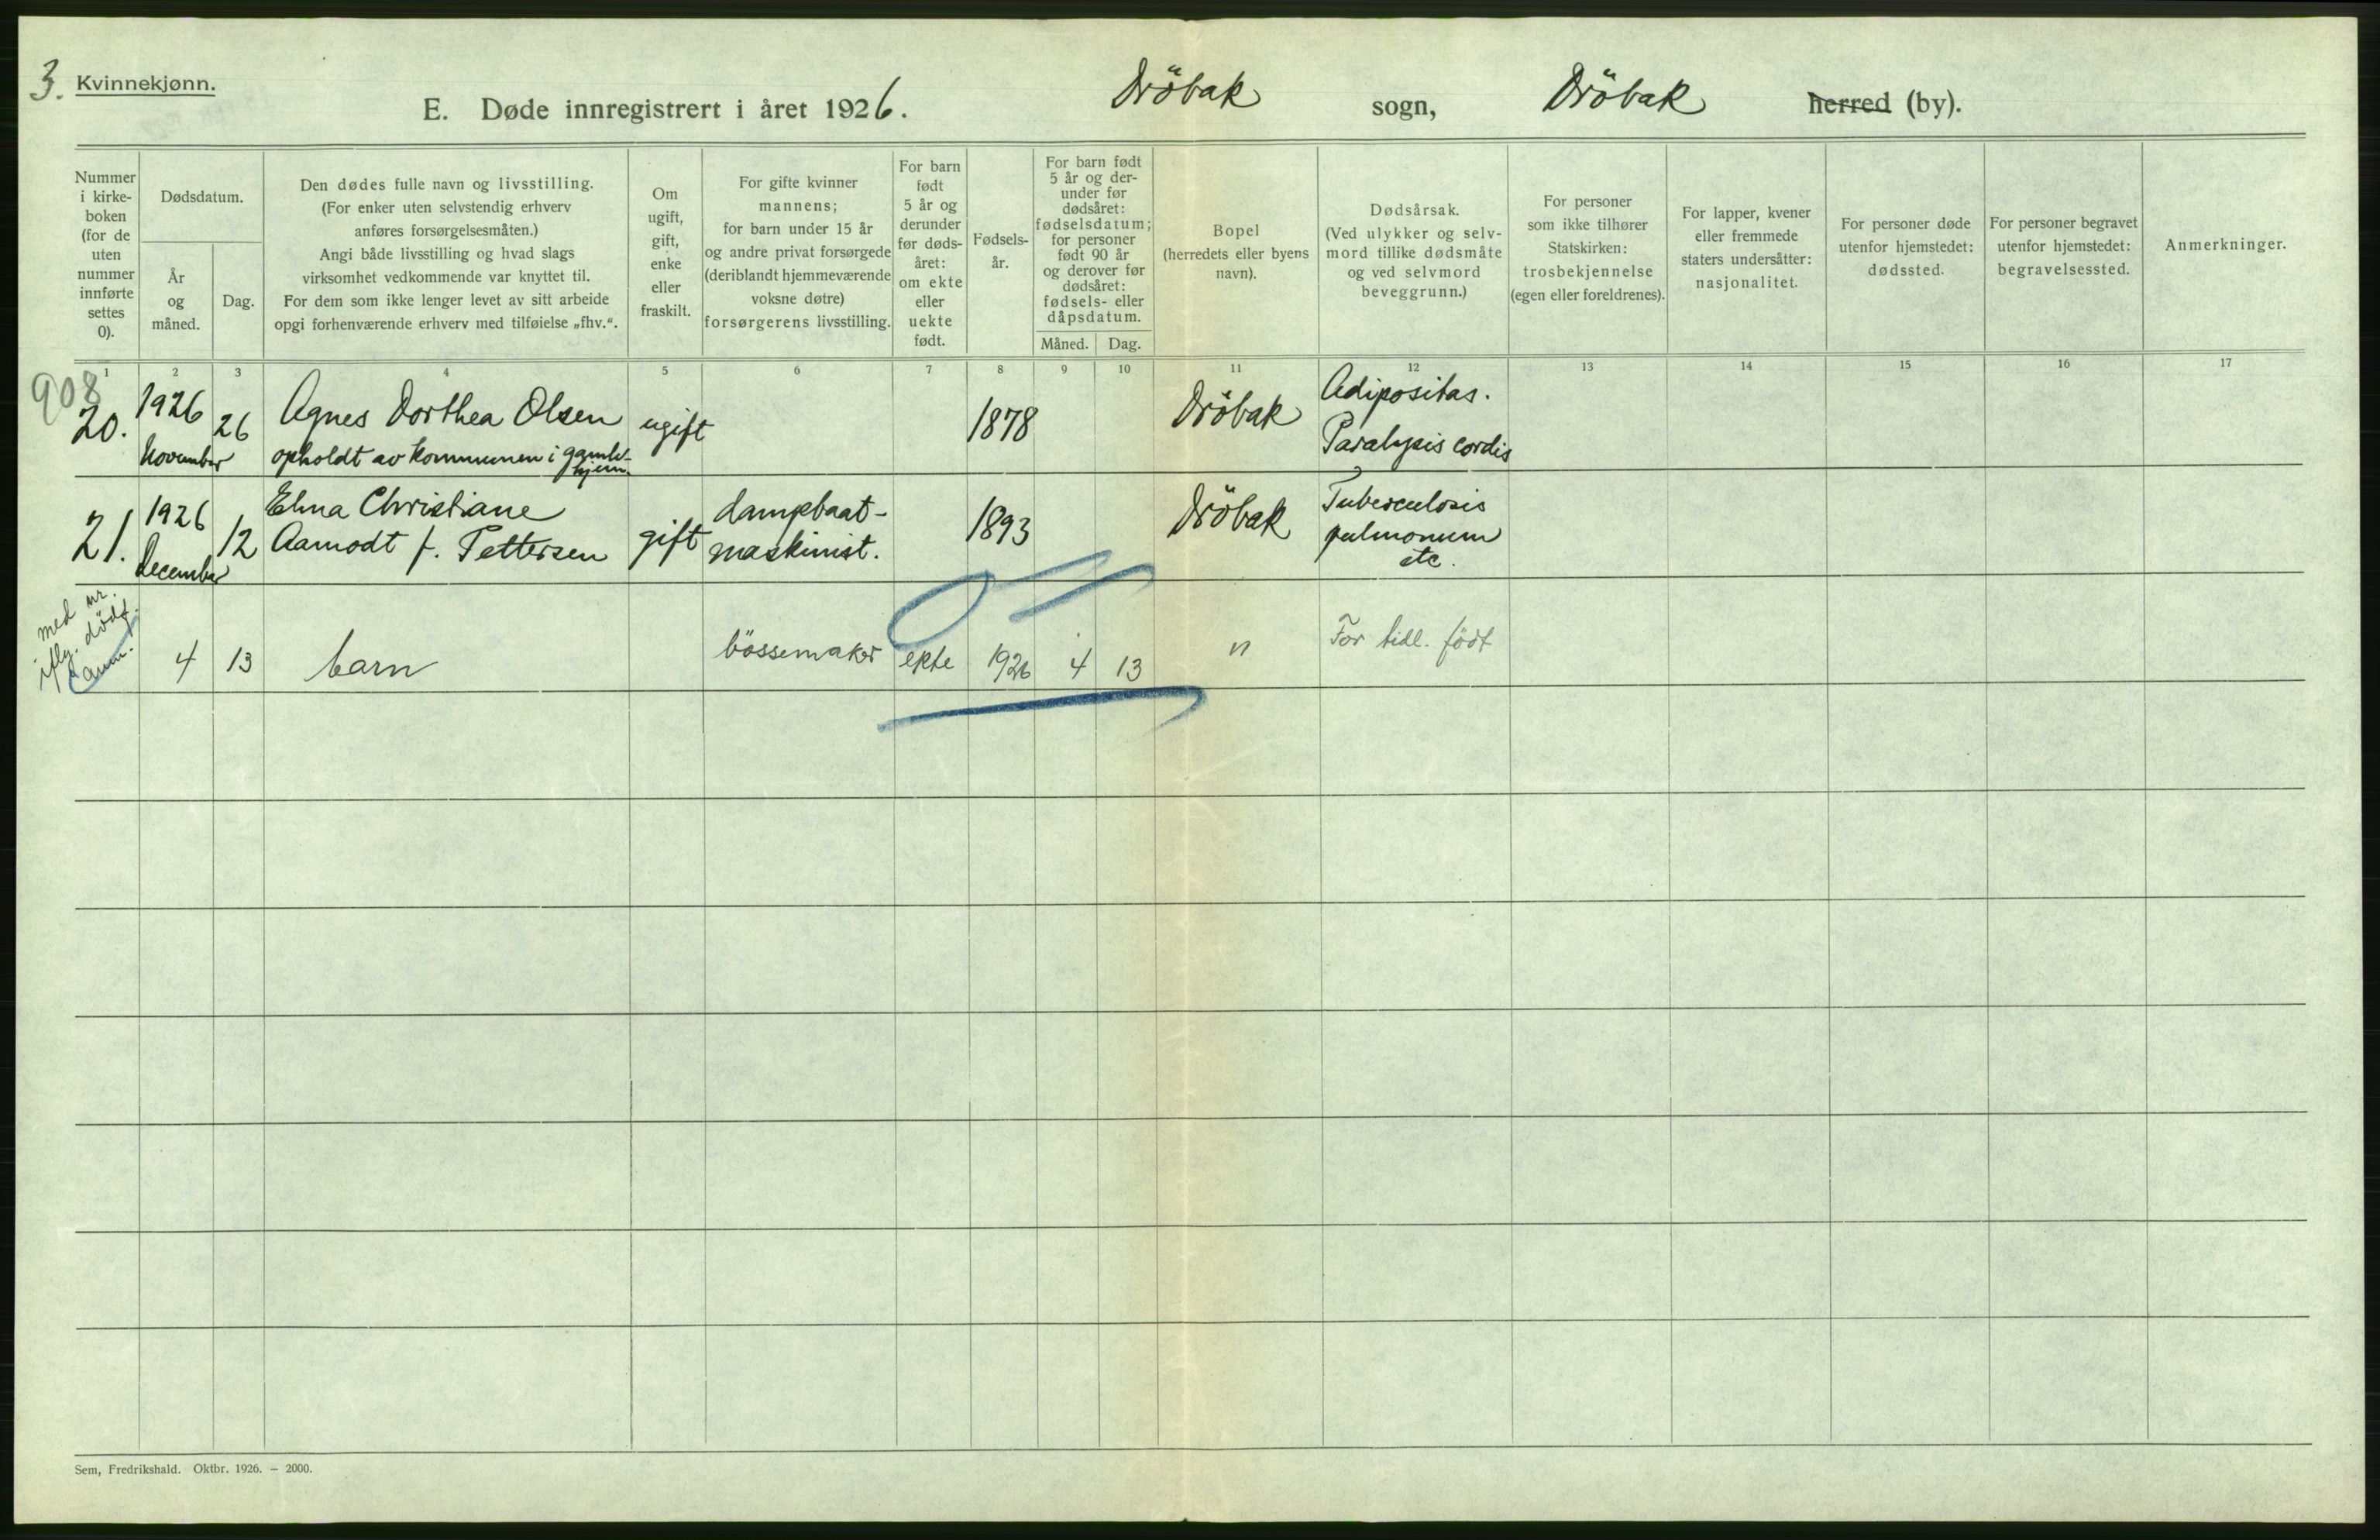 3. Kvinnekjønn.
E. Døde innregistrert i året 1926. Dröbak sogn, Dröbak herred (by).
Nummer
i kirke-
boken
(for de
uten
nummer
innførte
settes
0).
Dødsdatum.
År
og
måned.
Dag.
Den dødes fulle navn og livsstilling.
(For enker uten selvstendig erhverv
anføres forsørgelsesmåten.)
Angi både livsstilling og hvad slags
virksomhet vedkommende var knyttet til.
For dem som ikke lenger levet av sitt arbeide
opgi forhenværende erhverv med tilføielse „fhv.“.
Om
ugift,
gift,
enke
eller
fraskilt.
For gifte kvinner
mannens;
for barn under 15 år
og andre privat forsørgede
(deriblandt hjemmeværende
voksne døtre)
forsørgerens livsstilling.
For barn
født
5 år og
derunder
før døds-
året:
om ekte
eller
uekte
født.
Fødsels-
år.
For barn født
5 år og der-
under før
dødsåret:
fødselsdatum;
for personer
født 90 år
og derover før
dødsåret:
fødsels- eller
dåpsdatum.
Måned. Dag.
Bopel
(herredets eller byens
navn).
Dødsårsak.
(Ved ulykker og selv-
mord tillike dødsmåte
og ved selvmord
beveggrunn.)
For personer
som ikke tilhører
Statskirken:
trosbekjennelse
(egen eller foreldrenes).
For lapper, kvener
eller fremmede
staters undersåtter:
nasjonalitet.
For personer døde
utenfor hjemstedet:
dødssted.
For personer begravet
utenfor hjemstedet:
begravelsessted.
Anmerkninger.
1 2 3 4 5 6 7 8 9 10 11 12 13 14 15 16 17
908
20.
1926
November
26
Agnes Dorthea Olsen
opholdt av kommunen i gamle-
hjem.
ugift
1878
Dröbak
Adipositas.
Paralysis cordis
21.
1926
December
12
Elna Christiane
Aamodt f. Pettersen
gift
dampbaat-
maskinist.
1893
Dröbak
Tuberculosis
pulmonum
etc.
med nr.
iflg. dödf.
anm.
4 13 barn bössemaker ekte 1926 4 13 " For tidl. födt
Sem, Fredrikshald. Oktbr. 1926. – 2000.